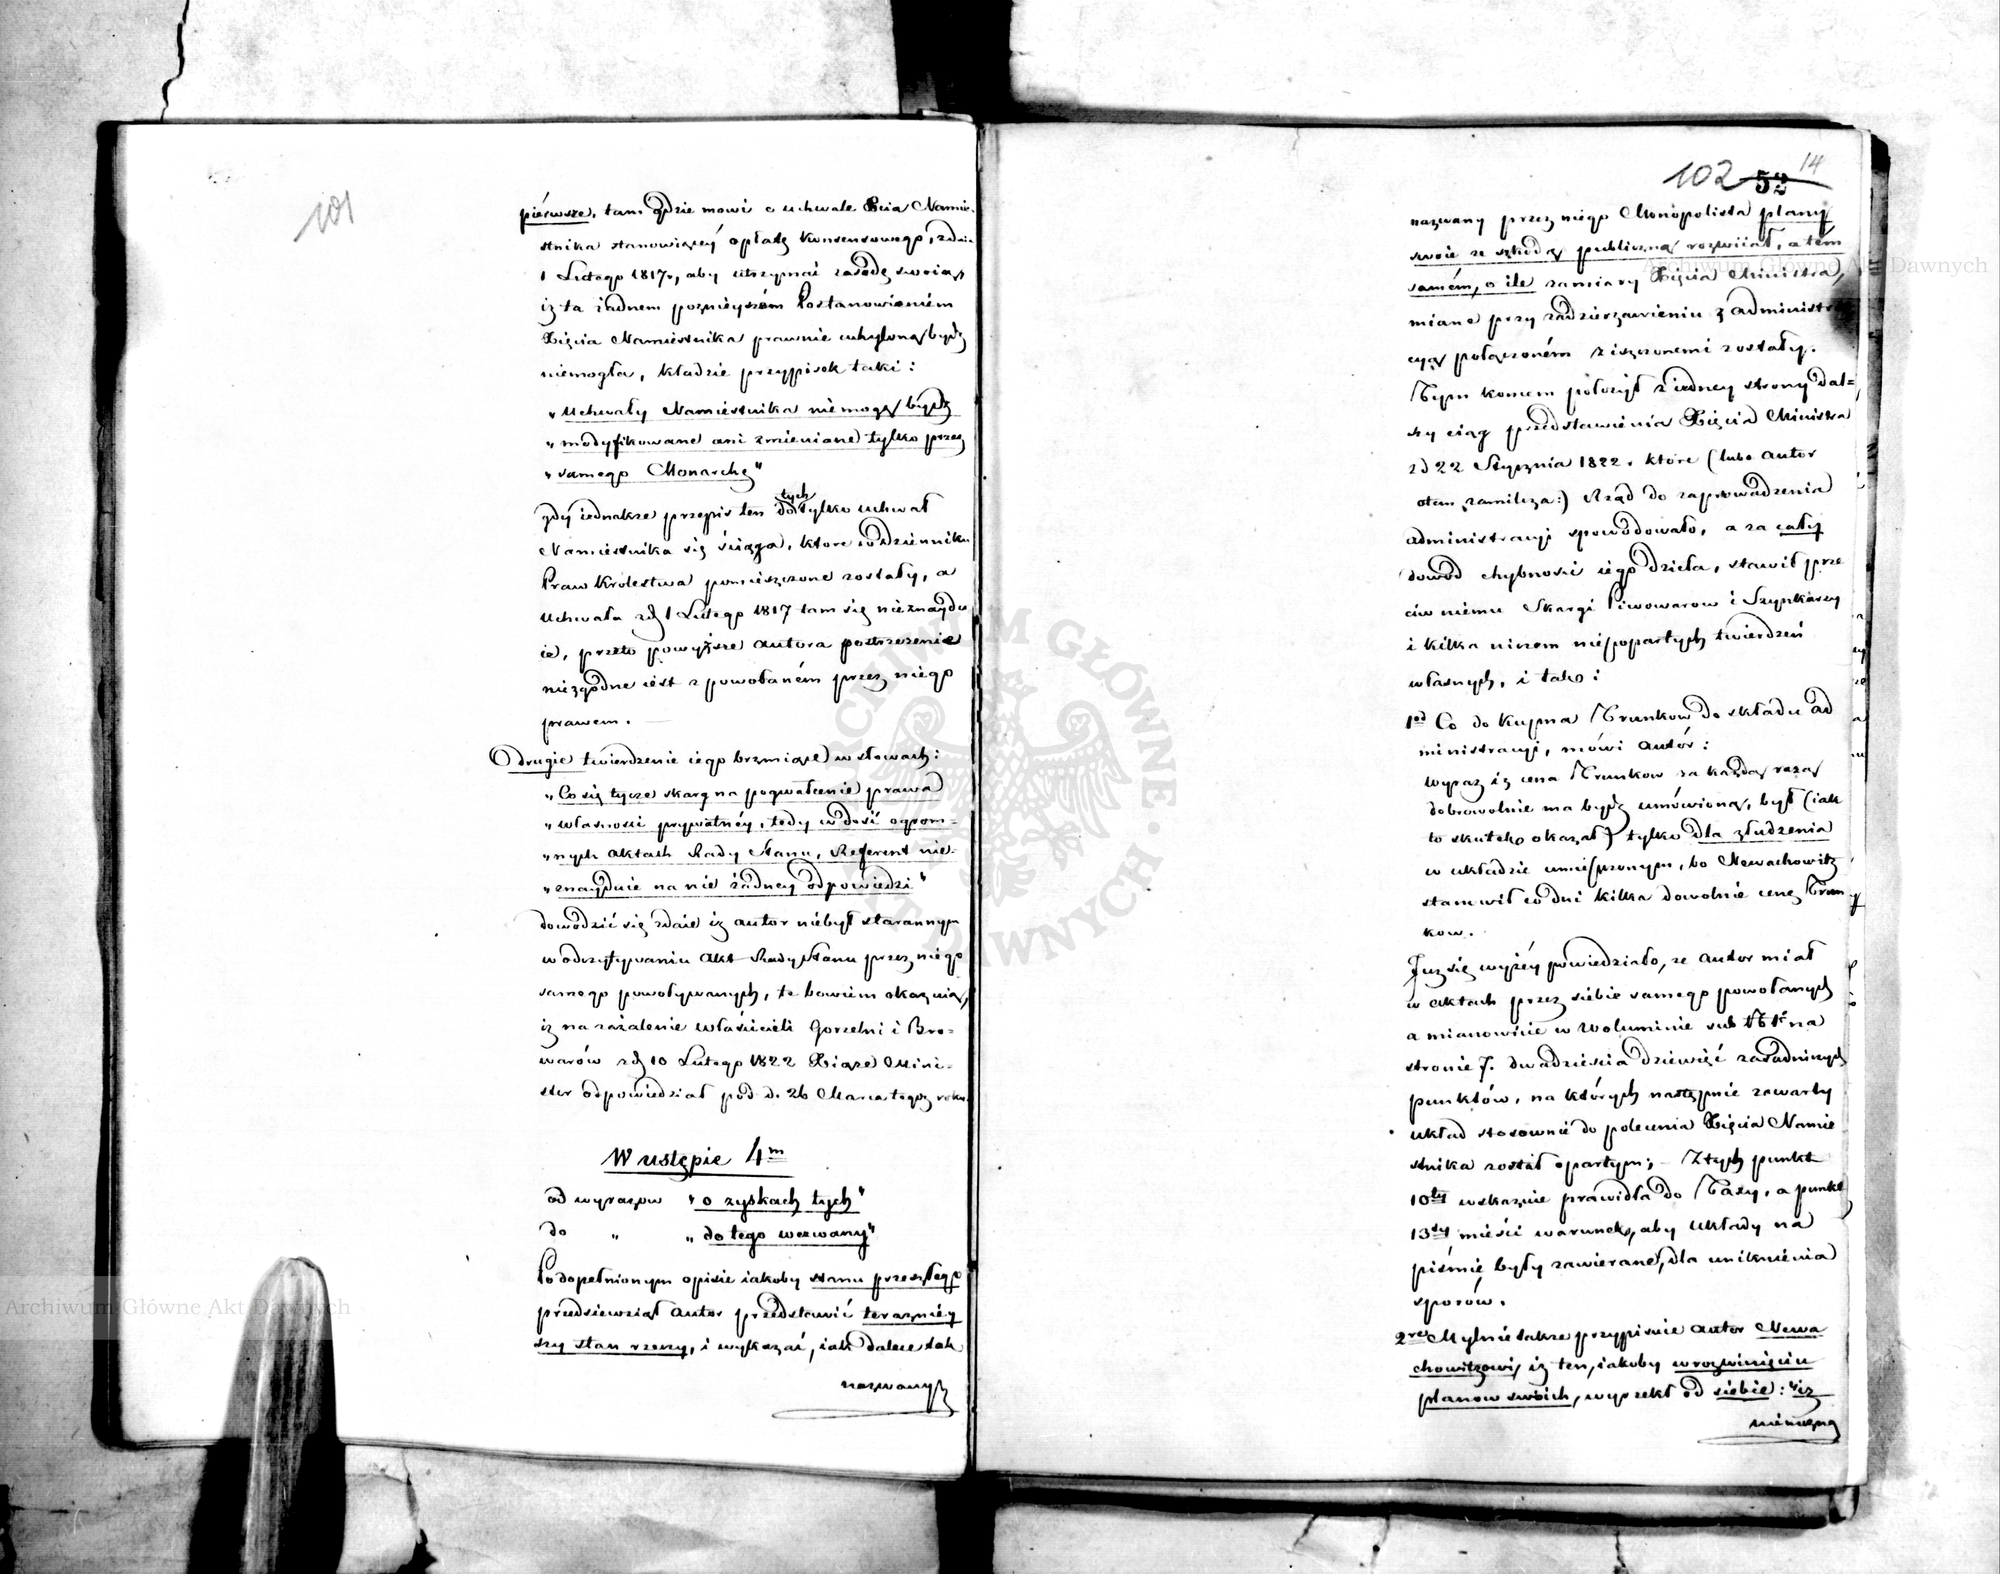 101
pierwsze, tam gdzie mowi o uchwale Xcia Namie-
stnika stanowiącéy opłatę konsensowego, z dnia
1 Lutego 1817r, aby utrzymać zasadę swoią
iż ta żadnem poznieyszém Postanowieniem
Xięcia Namiestnika prawnie uchyloną bydź
niemogła, kładzie przypisek taki:
„Uchwały Namiestnika niemogą bydź
„modyfikowane ani zmieniane tylko przez
„samego Monarchę"
gdy iednakże przepis ten do tych tylko uchwał
Namiestnika się ściąga, ktore w dzienniku
Praw Krolestwa pomieszczone zostały, a
Uchwała z d 1 Lutego 1817 tam się nieznaydu
ie, przeto powyższe autora postrzeżenie
niezgodne iest z powołaném przez niego
prawem.
O drugie twierdzenie iego brzmiące w słowach:
„Co się tycze skarg na pogwałcenie prawa
„własności prywatnéy, tedy w dość ogrom-
„nych aktach Rady Stanu, Referent nie-
„znayduie na nie żadney odpowiedzi"
dowodzić się zdaie iż autor niebył starannym
w odczytywaniu akt Rady Stanu przez niego
samego powoływanych, te bowiem okazuią,
iż na zażalenie właścicieli Gorzelni i Bro-
warów z d 10 Lutego 1822 Xiąże Mini-
ster odpowiedział pod d. 26 Marca tegoż roku.
W ustępie 4m
od wyrazow „o zyskach tych"
do „ „do tego wezwany"
Po dopełnionym opisie iakoby stanu przeszłego
przedsiewziął autor przedstawić teraznièy
szy stan rzeczy, i wykazać, iak dalece tak
nazwany
102 52 14
nazwany przez niego Monopolista plany
swoie ze szkodą publiczną rozwiiał, a tém
samém, o ile zamiary Xięcia Ministra,
miane przy zadzierzawieniu z administra
cyą połączoném ziszczonemi zostały.
Tym koncem położył z iedney strony dal=
szy ciąg przedstawienia Xięcia Ministra
z d 22 Stycznia 1822. które (lubo autor
otem zamilcza:) Rząd do zaprowadzenia
administracyi spowodowało, a za cały
dowod chybności iego dzieła, stawił prze
ciw niemu Skargi Piwowarow i Szynkarzy
i kilka niczem niepopartych twierdzeń
własnych, i tako:
1od Co do kupna Trunkow do składu ad
ministracyi, mówi autór:
Wyraz iż cena Trunkow za każdą razą
dobrowolnie ma bydź umówioną, był (iak
to skutek okazał) tylko dla złudzenia
w układzie umieszczonym, bo Newachowitz
stanowił co dni kilka dowolnie cenę Trun
kow.
Juz się wyżey powiedziało, ze autor miał
w aktach przez siebie samego powołanych
a mianowicie w Woluminie sub N 1 na
stronie 7. dwadzieścia dziewięć zasadniczych
punktów, na których następnie zawarty
układ stosownie do polecenia Xięcia Namie
stnika został opartym; – Z tych punkt
10ty wskazuie prawidła do Taxy, a punkt
13sty mieści warunek, aby układy na
piśmie były zawierane, dla uniknienia
sporów.
2re Mylnie takze przypisuie autor Newa
chowitzowi, iż ten, iakoby w rozwinięciu
planow swoich, wyrzekł od siebie: „iż